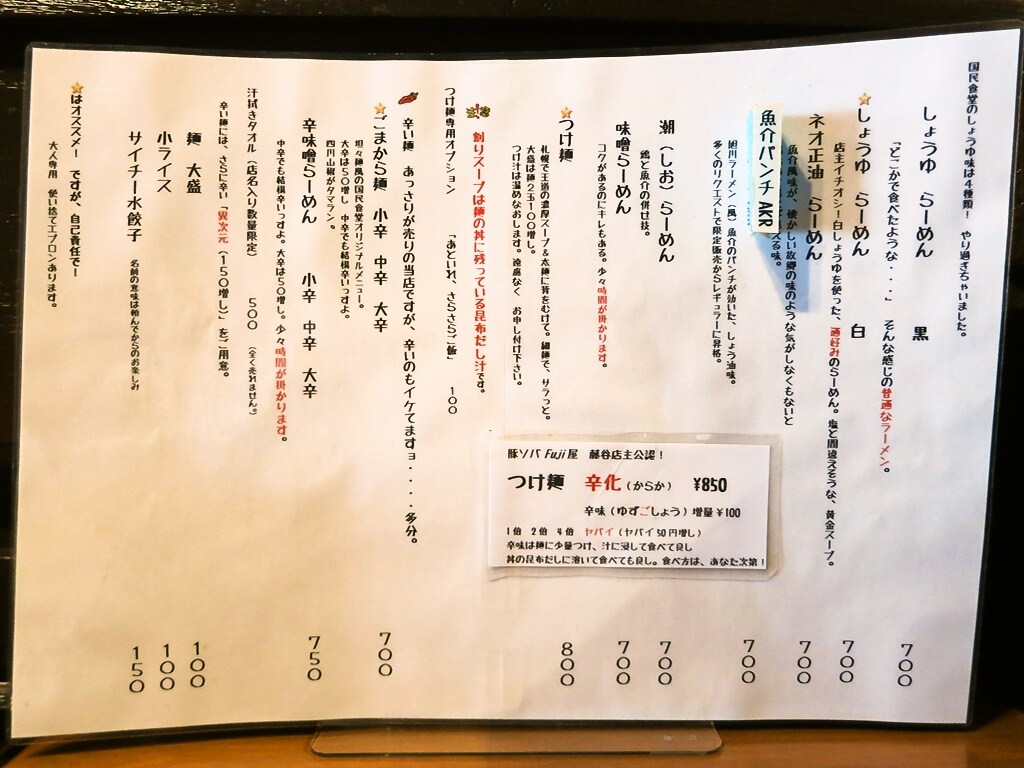 国民食堂のしょうゆ味は4種類！　やり過ぎちゃいました。
しょうゆ　らーめん　　黒　　７００
「どこかで食べたような・・・」　そんな感じの普通なラーメン。
☆しょうゆ　らーめん　　白　　７００
店主イチオシ！白しょうゆを使った、通好みのらーめん。塩と間違えそうな、黄金スープ。
ネオ正油　らーめん　　７００
魚介風味が、懐かしい故郷の味のような気がしなくもないと
える味。
魚介パンチ AKR　　７００
旭川ラーメン（風）魚介のパンチが効いた、しょう油味。
多くのリクエストで限定販売からレギュラーに昇格。
潮（しお）らーめん　　７００
鶏と魚介の併せ技。
味噌らーめん　　７００
コクがあるのにキレもある。少々時間が掛かります。
☆つけ麺　　８００
札幌で王道の濃厚スープ＆太麺に背をむけて。細麺で、サラっと。
大盛は麺２玉１００増し。
つけ汁は温めなおします。遠慮なく　お申し付け下さい。
割りスープは麺の丼に残っている昆布だし汁です。
つけ麺専用オプション　　「あといれ、さらさらご飯」　　１００
辛い麺　あっさりが売りの当店ですが、辛いのもイケてますョ・・・・多分。
☆ごまから麺　小辛　中辛　大辛　　７００
坦々麺風の国民食堂オリジナルメニュー。
大辛は５０増し　中辛でも結構辛いっすよ。
四川山椒がタマラン。
辛味噌らーめん　　小辛　中辛　大辛　　７５０
中辛でも結構辛いっすよ。大辛は５０増し。少々時間が掛かります。
汗拭きタオル（店名入り数量限定）　　５００　（全く売れません。）
辛い麺には、さらに辛い「異次元（１５０増し）」をご用意。
麺　大盛　　１００
小ライス　　１００
サイチー水餃子　　名前の意味は頼んでからのお楽しみ　　１５０
☆はオススメー　ですが、自己責任でー
大人専用　使い捨てエプロンあります。
豚ソバ Fuji屋　藤谷店主公認！
つけ麺　辛化（からか）　¥850
辛味（ゆずごしょう）増量¥100
1倍　2倍　4倍　ヤバイ（ヤバイ50円増し）
辛味は麺に少量つけ、汁に浸して食べて良し
丼の昆布だしに溶いて食べても良し。食べ方は、あなた次第！